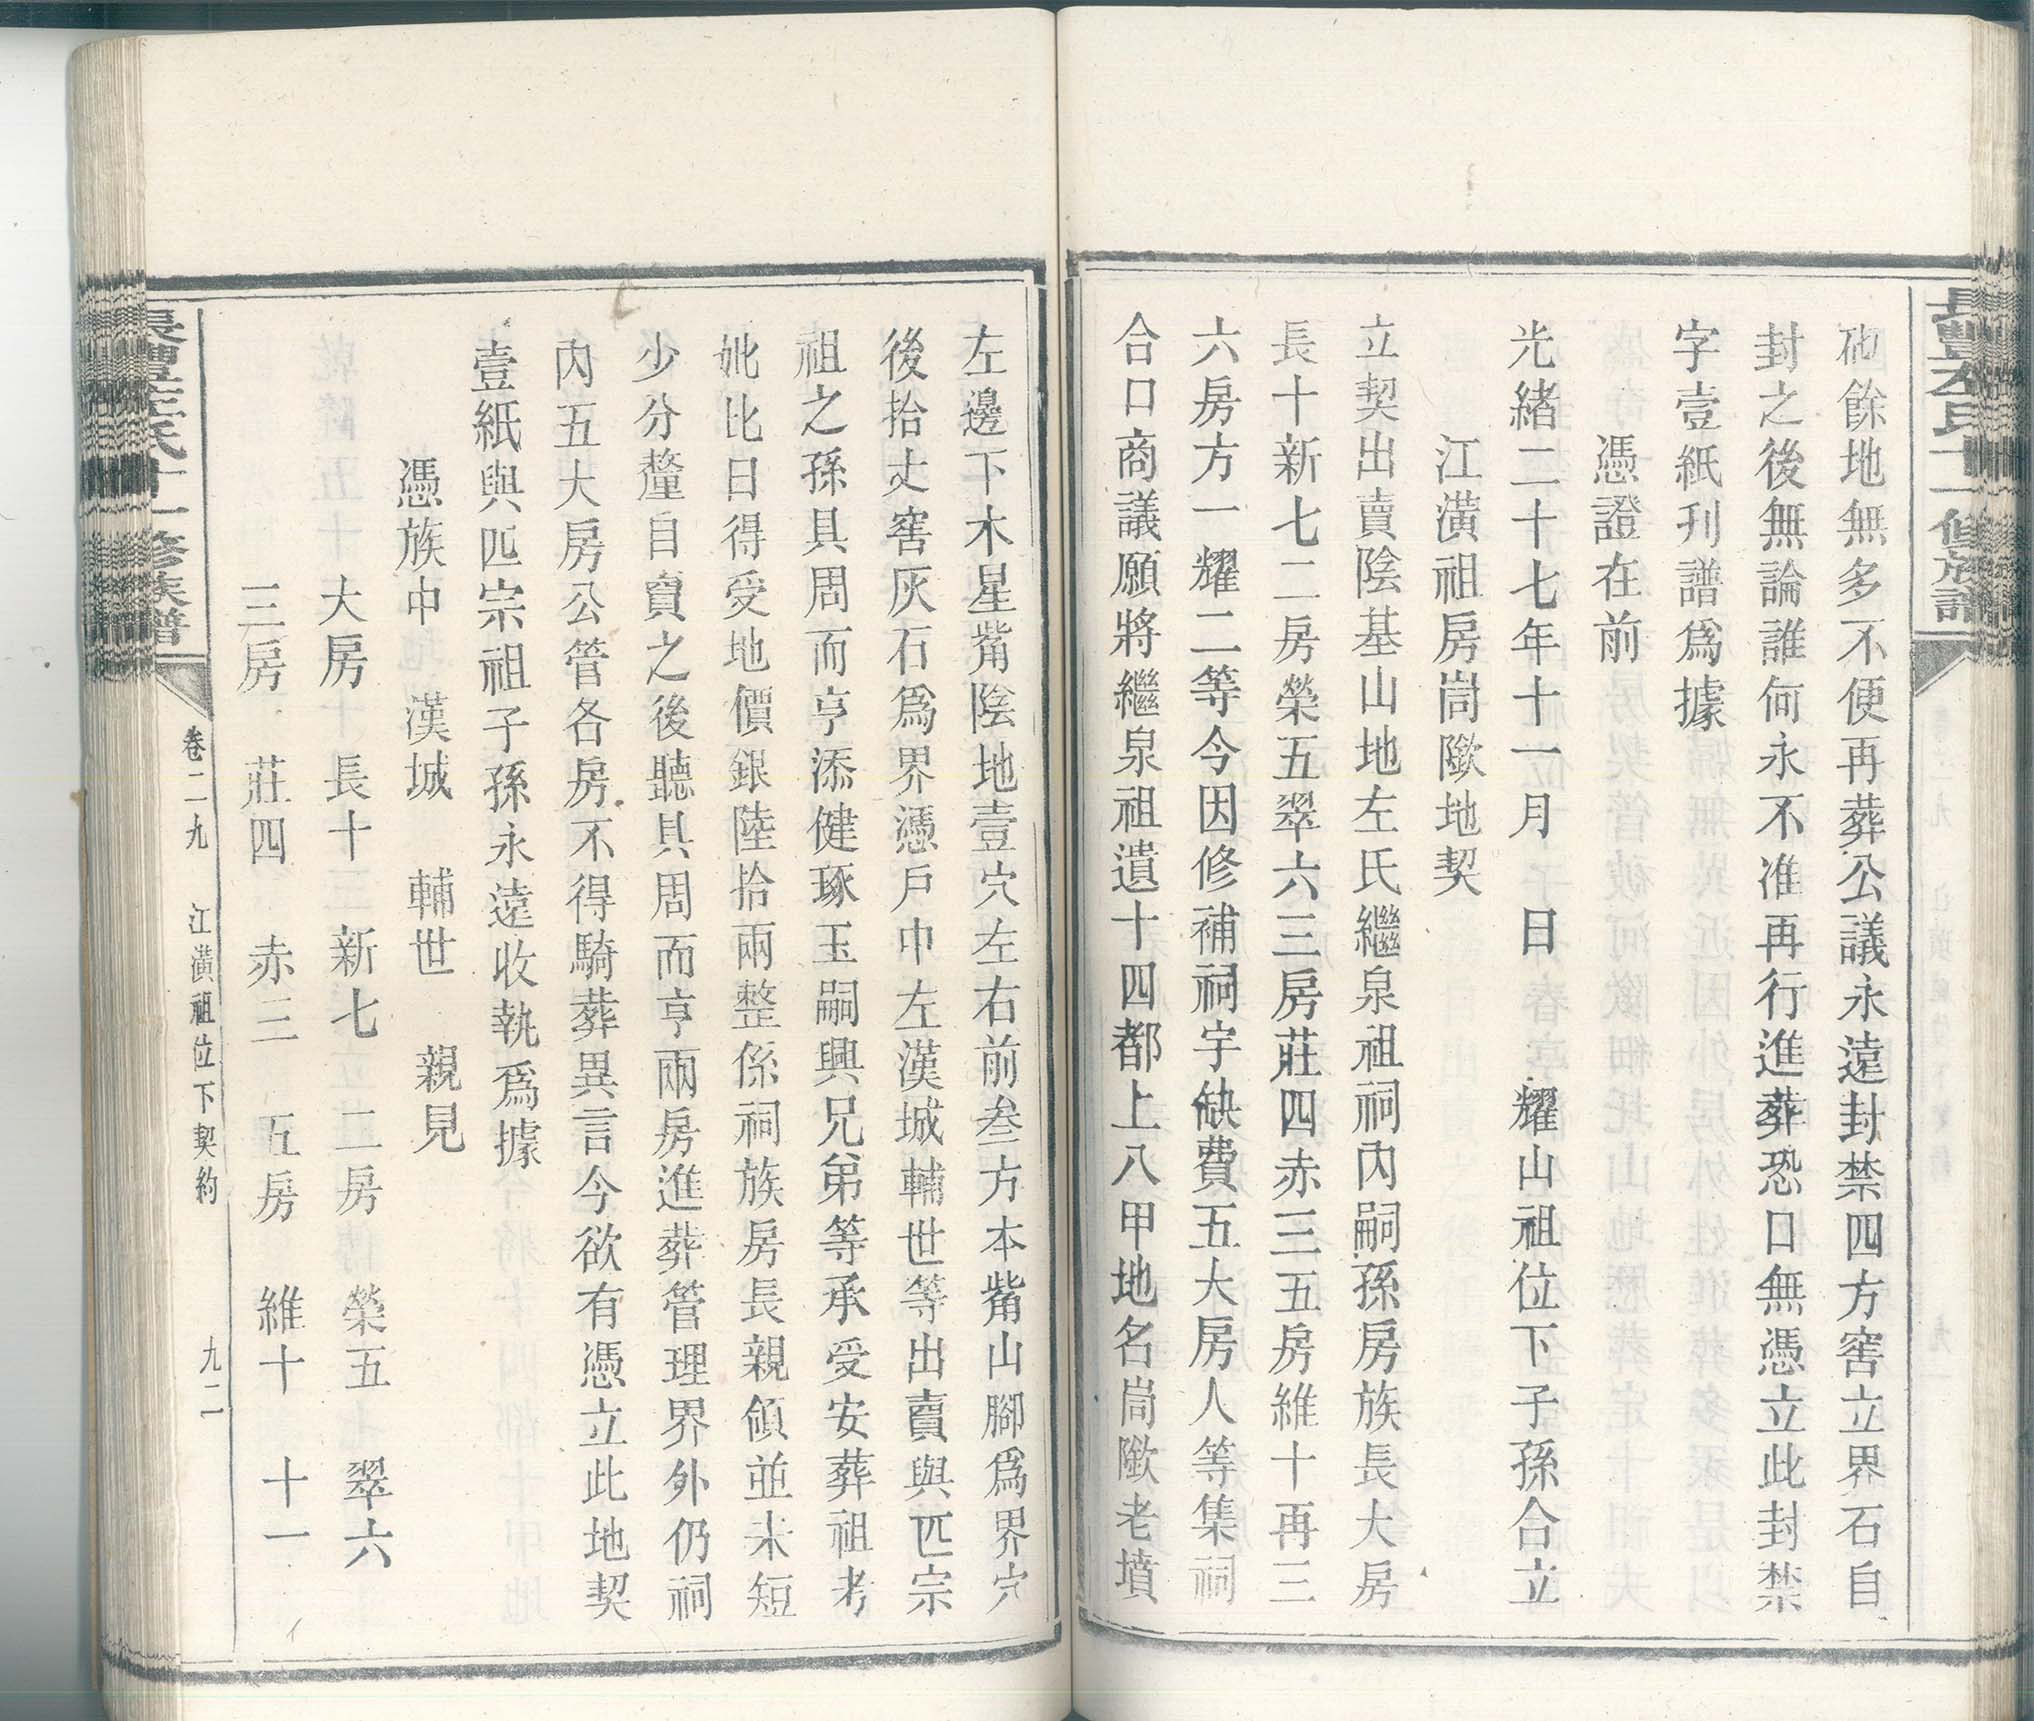 長豐左氏十一修族譜
砌餘地無多不便再葬公議永遠封禁四方窖立界石自
封之後無論誰何永不准再行進葬恐口無憑立此封禁
字壹紙刋譜爲據
憑證在前
光緒二十七年十一月　日　耀山祖位下子孫合立
江潢祖房峝歞地契
立契出賣陰基山地左氏繼泉祖祠內嗣孫房族長大房
長十新七二房榮五翠六三房莊四赤三五房維十再三
六房方一耀二等今因修補祠宇缺費五大房人等集祠
合口商議願將繼泉祖遺十四都上八甲地名峝歞老墳
左邊下木星觜陰地壹穴左右前叁方本觜山腳爲界穴
後拾丈窖灰石爲界憑戶中左漢城輔世等出賣與匹宗
祖之孫具周而亨添健琢玉嗣興兄弟等承受安葬祖考
妣比日得受地價銀陸拾兩整係祠族房長親領並未短
少分釐自賣之後聽具周而亨兩房進葬管理界外仍祠
內五大房公管各房不得騎葬異言今欲有憑立此地契
壹紙與匹宗祖子孫永遠收執爲據
憑族中　漢城　輔世　親見
大房　長十　新七　二房　榮五　翠六
三房　莊四　赤三　五房　維十　十一
長豐左氏十一修族譜
卷二九　江潢祖位下契約　九二